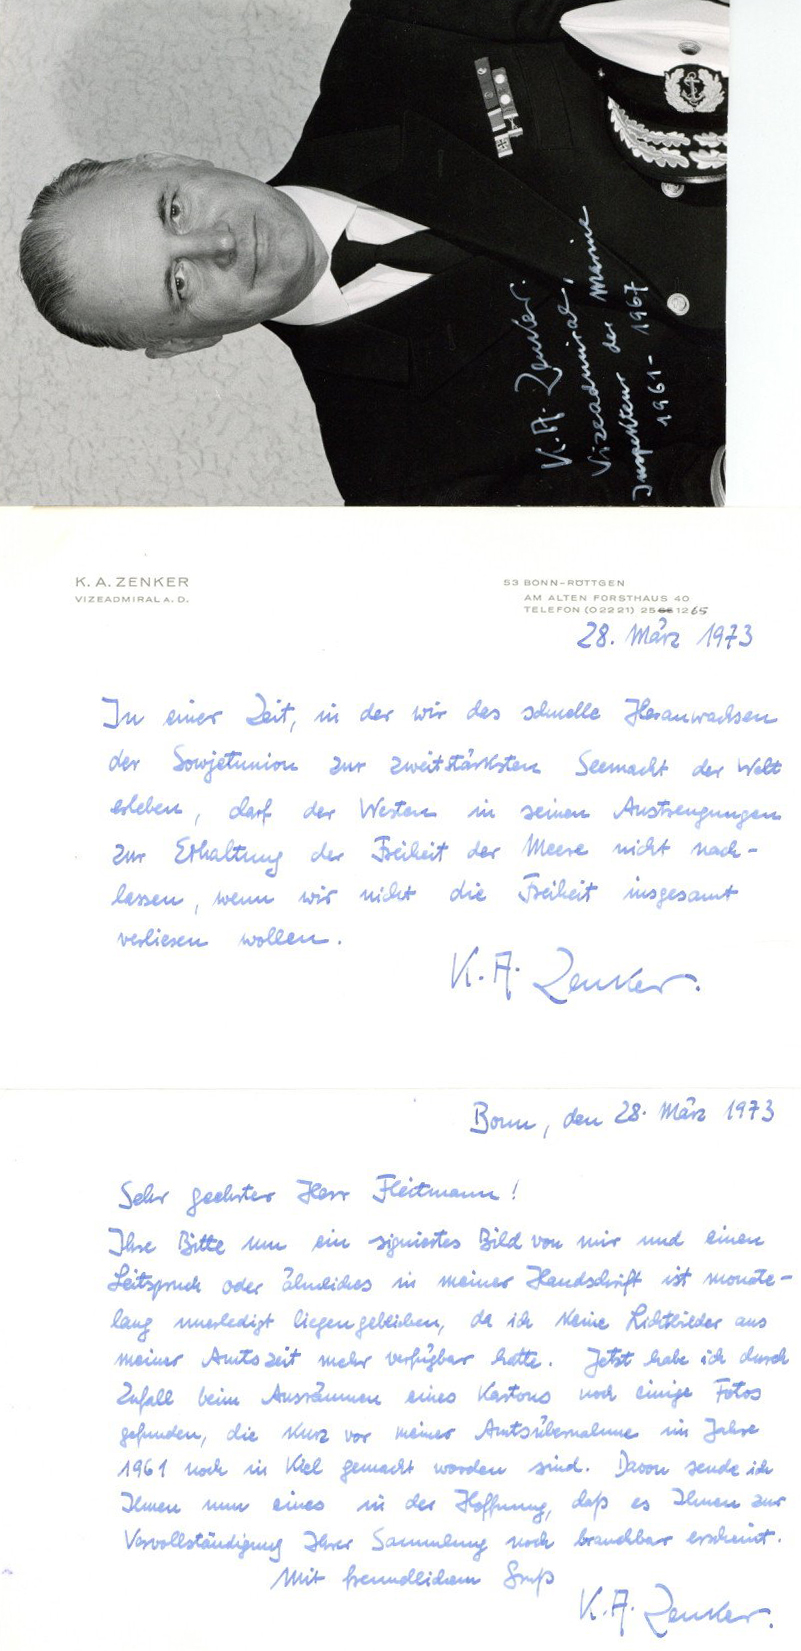 K. A. Zenker.
Vizeadmiral,
Inspekteur der Marine
1961 - 1967
K. A. ZENKER
VIZEADMIRAL A. D.
53 BONN-RÖTTGEN
AM ALTEN FORSTHAUS 40
TELEFON (02221) 25 12 65
28. März 1973
In einer Zeit, in der wir das schnelle Heranwachsen
der Sowjetunion zur zweitstärksten Seemacht der Welt
erleben, darf der Westen in seinen Anstrengungen
zur Erhaltung der Freiheit der Meere nicht nach-
lassen, wenn wir nicht die Freiheit insgesamt
verlieren wollen.
K. A. Zenker.
Bonn, den 28. März 1973
Sehr geehrter Herr Fleitmann!
Ihre Bitte um ein signiertes Bild von mir und einen
Leitspruch oder ähnliches in meiner Handschrift ist monate-
lang unerledigt liegengeblieben, da ich keine Lichtbilder aus
meiner Amtszeit mehr verfügbar hatte. Jetzt habe ich durch
Zufall beim Ausräumen eines Kartons noch einige Fotos
gefunden, die kurz vor meiner Amtsübernahme im Jahre
1961 noch in Kiel gemacht worden sind. Davon sende ich
Ihnen nun eines in der Hoffnung, daß es Ihnen zur
Vervollständigung Ihrer Sammlung noch brauchbar erscheint.
Mit freundlichem Gruß
K. A. Zenker.